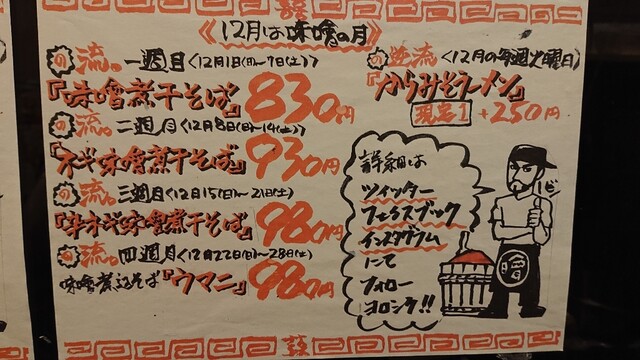 《12月は味噌の月》
の流。一週目〈12月1日(日)〜7日(土)〉
『味噌煮干そば』830円
の流。二週月〈12月8日(日)-14(土)〉
『ネギ味噌煮干そば』930円
の流。三週月〈12月15(日)~21日(土)
『辛ネギ味噌煮干そば』980円
の流。四週月〈12月22日(日)~28日(土)
味噌煮込そば『ウマニ』980円
の逆流〈12月の毎週火曜日〉
『からみそラーメン』
現金1 +250円
詳細は
ツイッター
フェイスブック
インスタグラム
にて
フォロー
ヨロシク!!
ビシ
噌